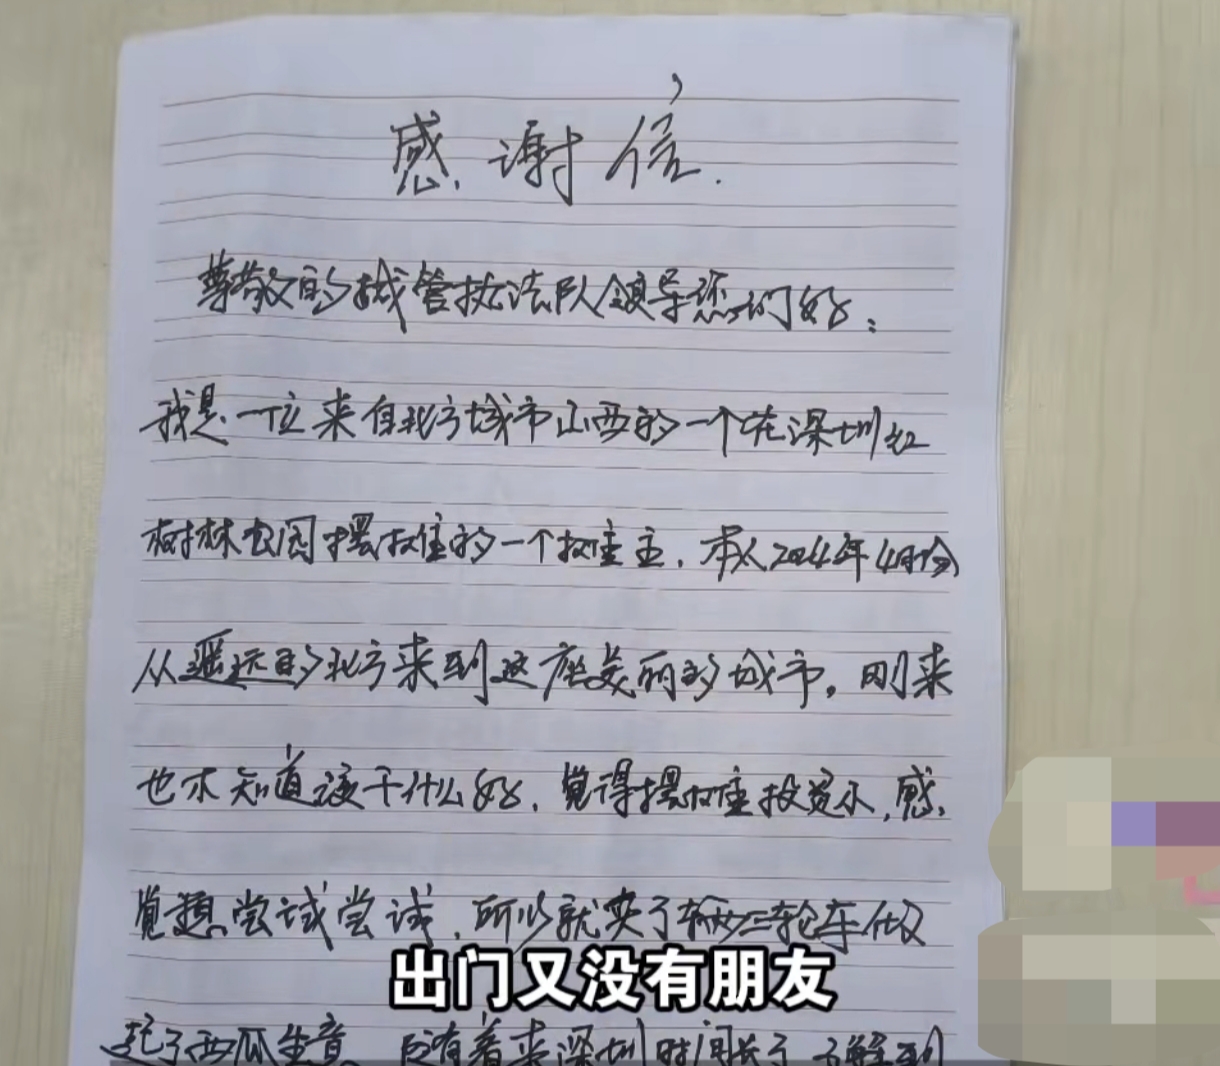 感谢信.
尊敬的城管执法队领导您们好:
我是一位来自北方城市山西的一个在深圳红
树林公园摆摊的一个摊主.我从2024年4月份
从遥远的北方来到这座美丽的城市。刚来
也不知道该干什么好.觉得摆摊投资小,感
觉想尝试尝试.所以就买了辆三轮车做
出门又没有朋友
起了西瓜生意。后有着来深圳时间长了了解到